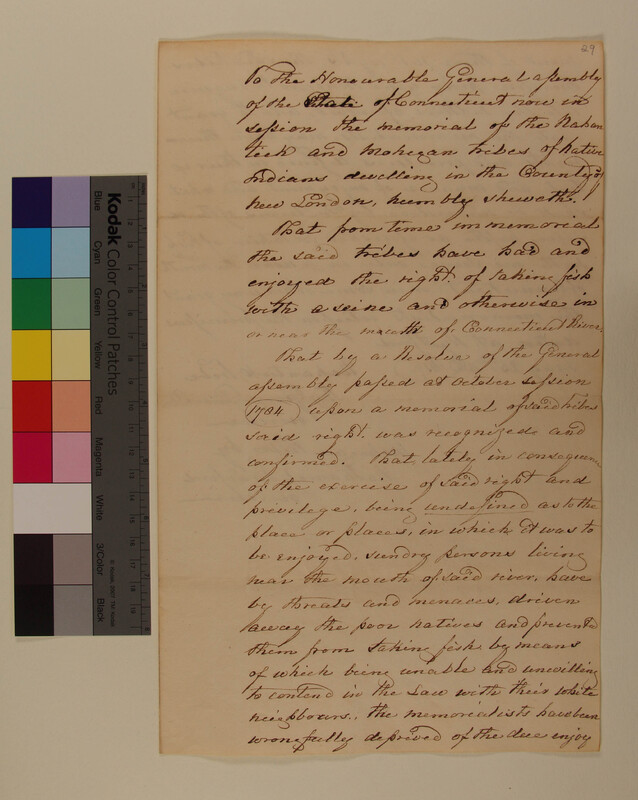 29
To the Honourable General assembly
of the State of Connecticut now in
session the memorial of the Nahan
teek and Mohegan tribes of Native
Indians dwelling in the County of
New London, humbly sheweth.
That from time immemorial
the said tribes have had and
enjoyed the right of taking fish
with a seine and otherwise in
or near the mouth of Connecticut River
That by a Resolve of the General
assembly passed at October session
1784 upon a memorial of said tribes
said right was recognized and
confirmed. That lately in consequence
of the exercise of said right and
privilege, being undefined as to the
place or places, in which it was to
be enjoyed, sundry persons living
near the mouth of said river, have
by threats and menaces, driven
away the poor natives and prevented
them from taking fish by means
of which being unable and unwilling
to contend in the Law with their white
neighbours, the memorialists have been
wrongfully deprived of the due enjoy
Kodak Color Control Patches
Blue
Cyan
Green
Yellow
Red
Magenta
White
3/Color
Black